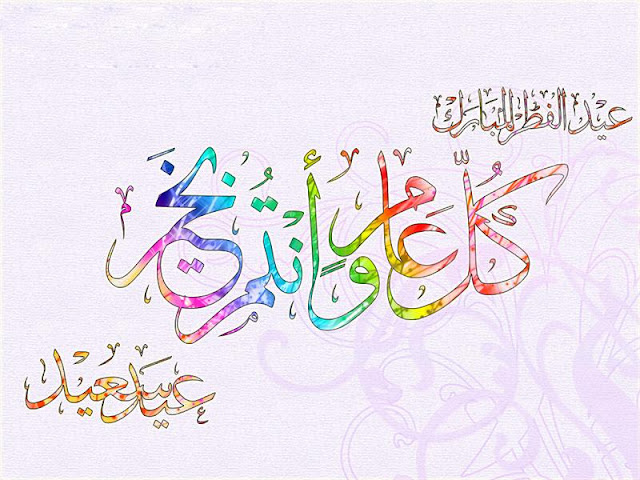 عيد الفطر المبارك
كُلّ عام وأنتُم بخير
عيد سعيد